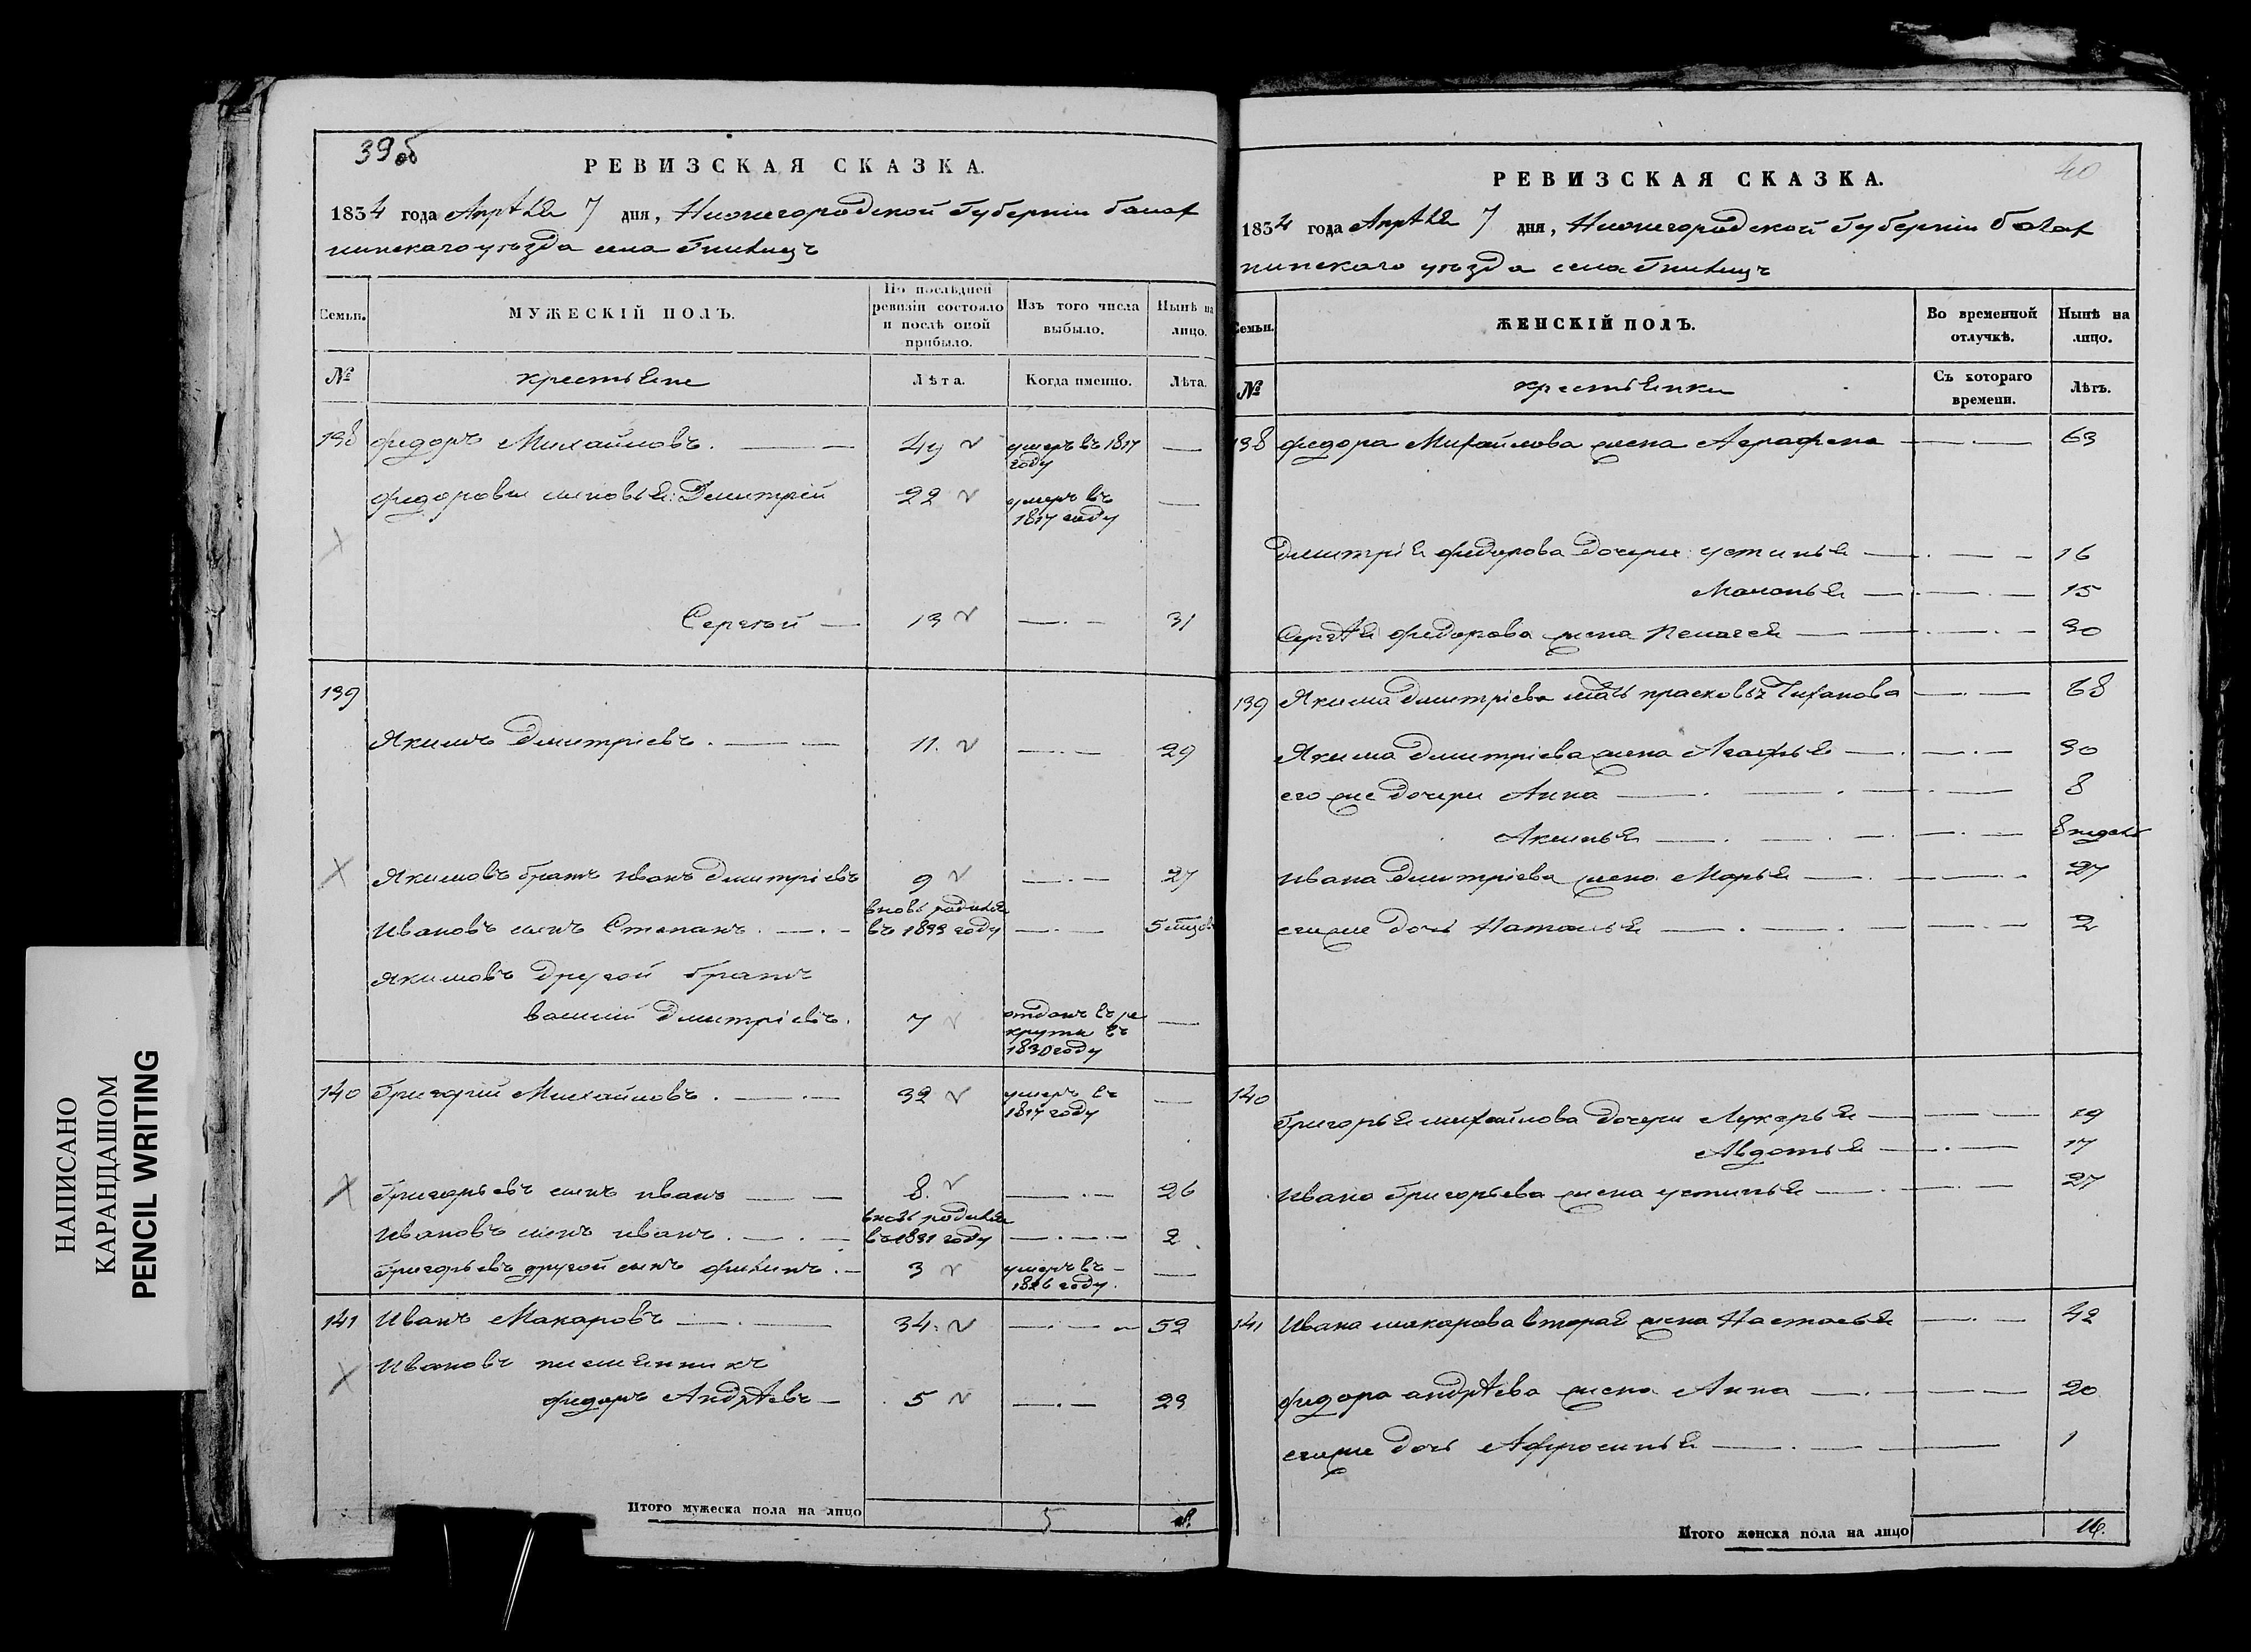 39об
РЕВИЗСКАЯ СКАЗКА.
1834 года Апрѣля 7 дня, Нижегородской Губерніи балах
нинскаго уѣзда села Гнилицъ
Семьи.
МУЖЕСКІЙ ПОЛЪ.
По послѣдней ревизіи состояло и послѣ оной прибыло.
Изъ того числа выбыло.
Нынѣ на лицо.
№ крестьяне Лѣта. Когда именно. Лѣта.
138 федоръ Михайловъ. 49 умеръ въ 1817 году
федоровы сыновья: Дмитрій 22 умеръ въ 1817 году
Сергѣй 13 31
139
Якимъ Дмитріевъ. 11. 29
Якимовъ братъ иванъ Дмитріевъ 9 27
Ивановъ сынъ Степанъ. вновь родился въ 1833 году
Якимовъ другой братъ
василий Дмитріевъ. 7 отданъ въ рекруты въ 1830 году
140 Григорий Михайловъ. 32 умеръ въ 1817 году
Григорьевъ сынъ иванъ 8. 26
Ивановъ сынъ иванъ. вновь родился въ 1831 году 2
Григорьевъ другой сынъ филипъ. 3 умеръ въ 1816 году.
141 Иванъ Макаровъ 34. 52
Ивановъ племянникъ
федоръ Андрѣевъ 5 23
Итого мужеска пола на лицо 5 8.
40
РЕВИЗСКАЯ СКАЗКА.
1834 года Апрѣля 7 дня, Нижегородской Губерніи балах
нинскаго уѣзда села Гнилицъ
Семьи.
ЖЕНСКІЙ ПОЛЪ.
Во временной отлучкѣ.
Нынѣ на лицо.
№ крестьянки Съ котораго времени. Лѣтъ.
138 федора Михайлова жена Аграфена 63
Дмитрія федорова дочери: устинья 16
Маланья 15
Сергѣя федорова жена Пелагея 30
139 Якима Дмитріева мать прасковья 68
Якима Дмитріева жена Агафья 30
его же дочери Анна 8
Аксинья 8 недель
Ивана Дмитріева жена Марья 27
его же дочь Наталья 2
140
Григорья михайлова дочери Лукерья 19
Авдотья 17
Ивана Григорьева жена устинья 27
141 Ивана макарова вторая жена Настасья 42
федора андрѣева жена Анна 20
его же дочь Афросинья 1
Итого женска пола на лицо 16.
НАПИСАНО
КАРАНДАШОМ
PENCIL WRITING